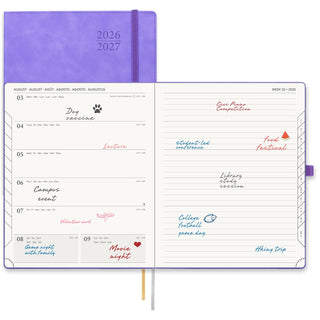 2026
2027
AUGUST · AUGUST · AOÛT · AGOSTO · AGOSTO · AUGUSTUS
WEEK 32 - 2026
03
Dog
vaccine
04
Lecture
05
06
Campus
event
07
Volunteer work
08
Game night
with family
09
Movie
night
Competition
student-led
conference
Food
festival
Library
study
session
College
football
game day
Hiking trip